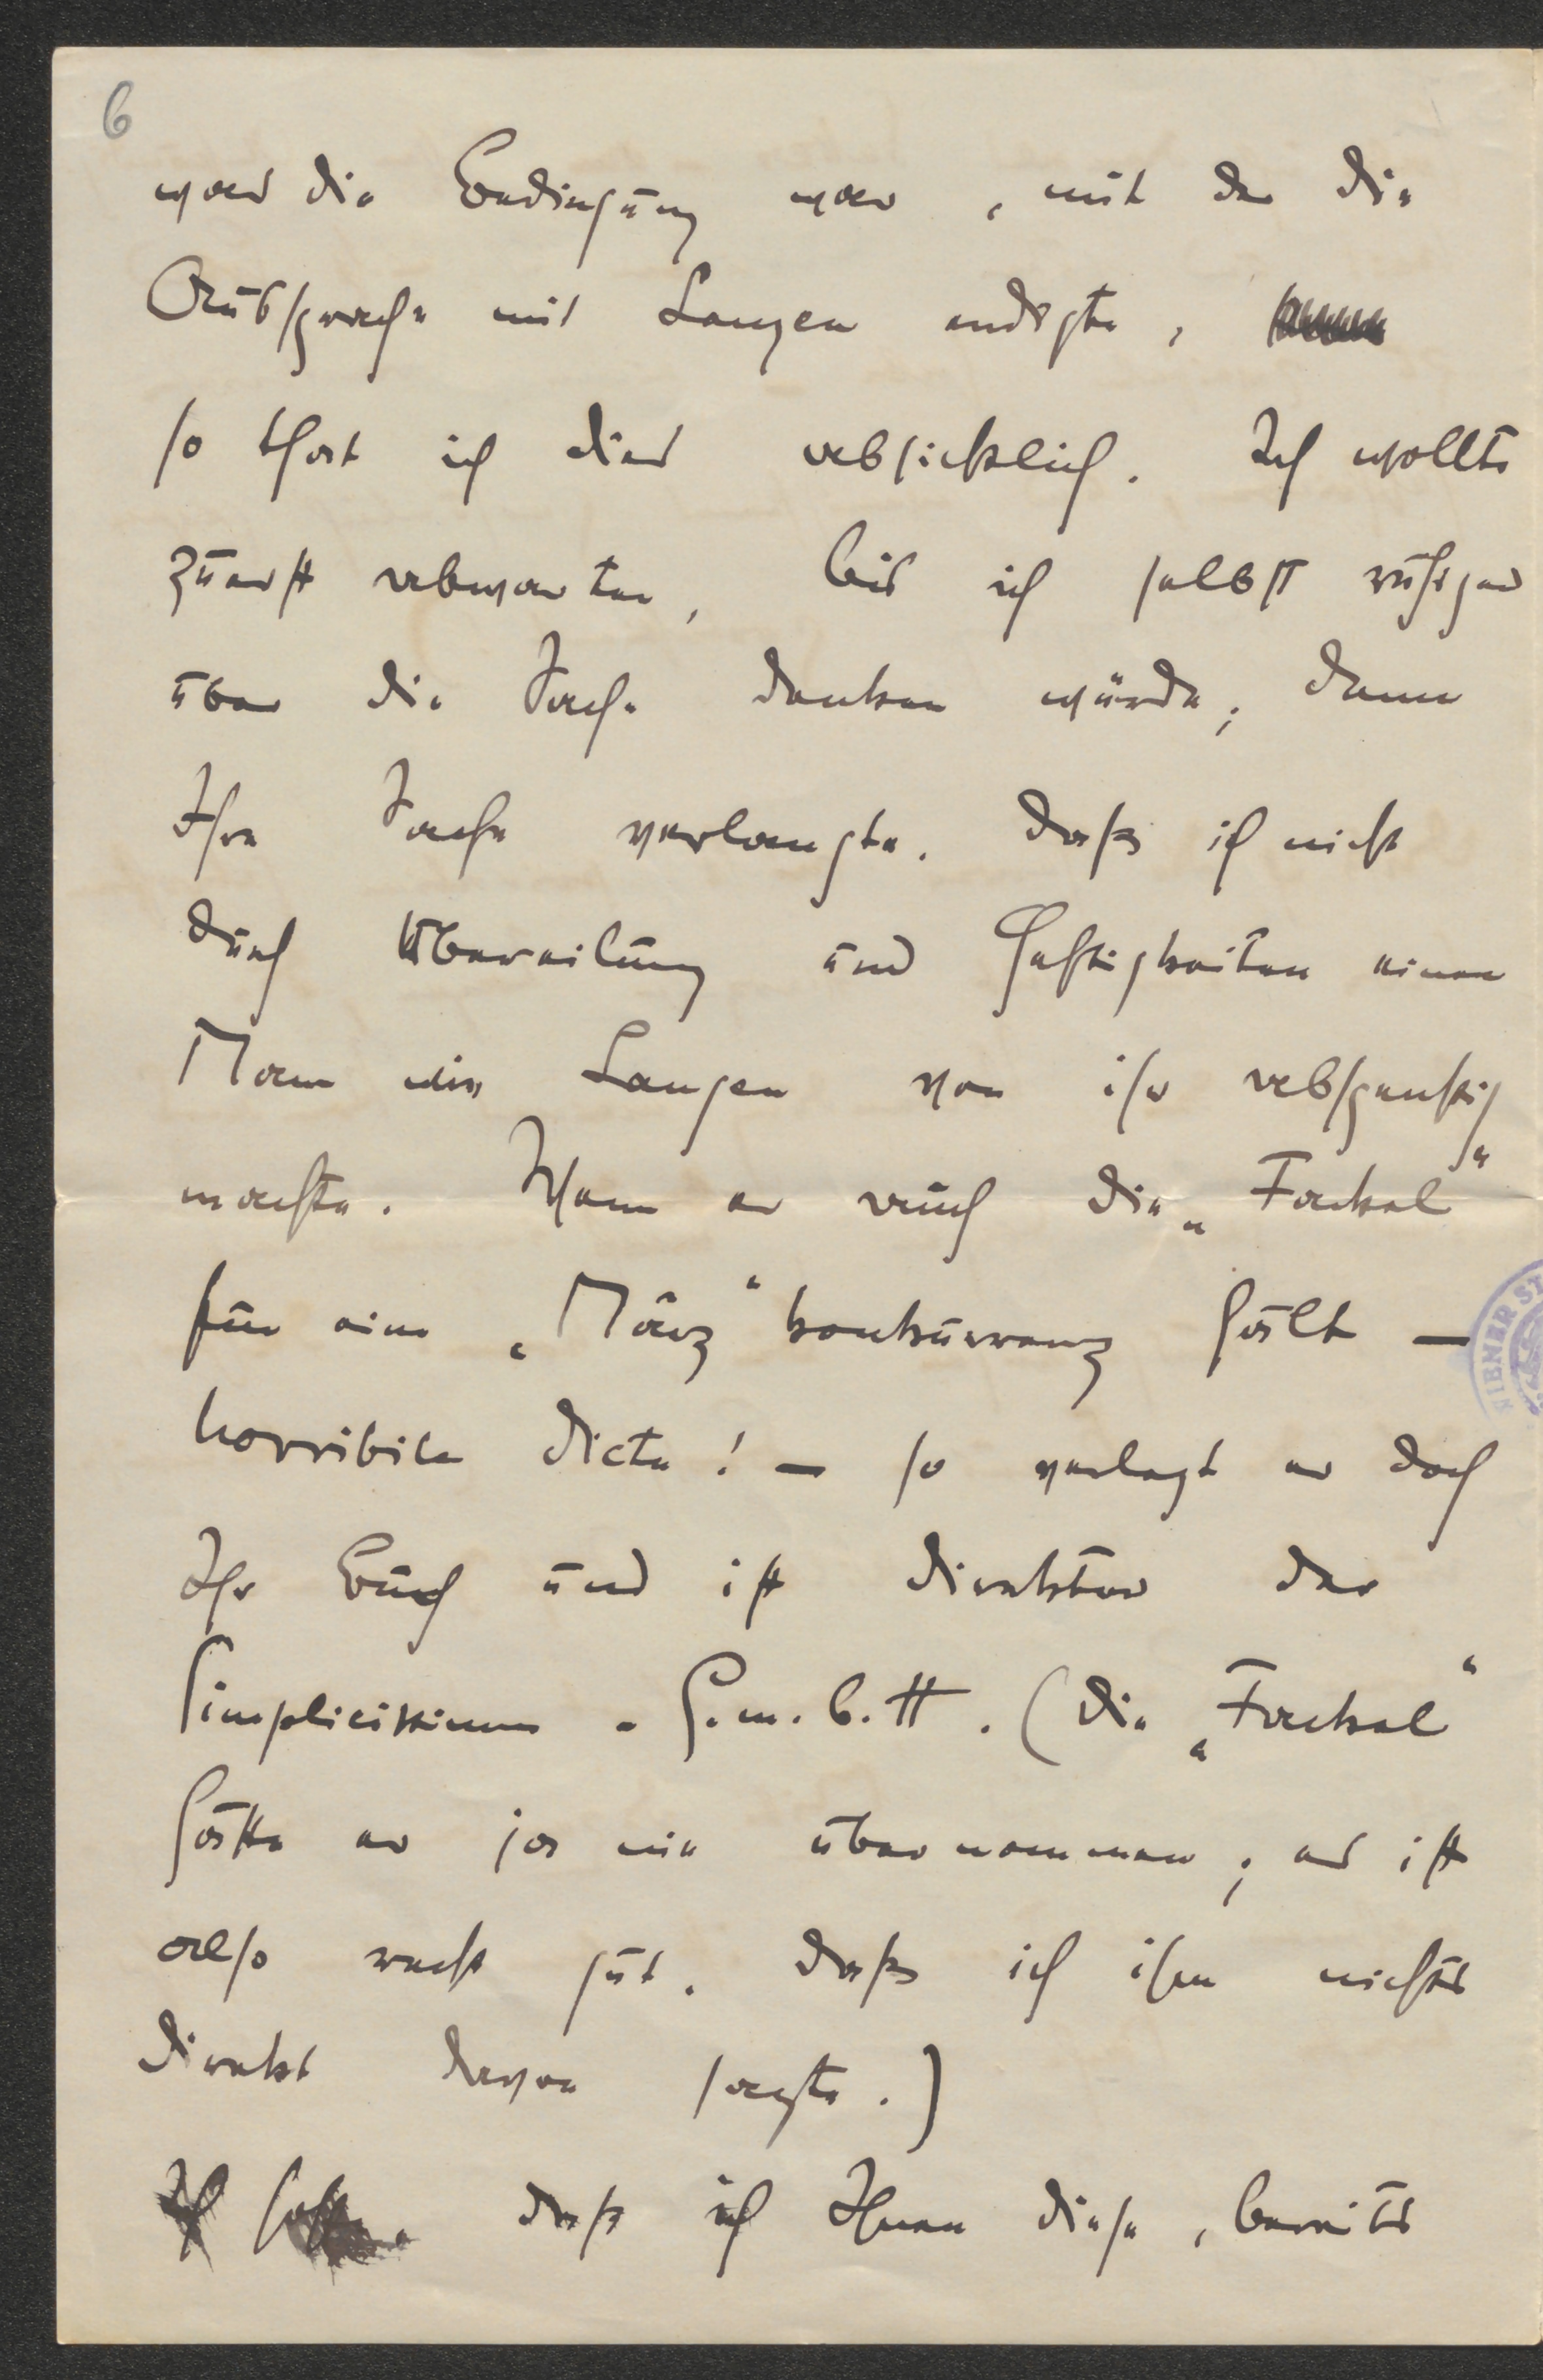 6
was die Bedingung war, mit der die
Aussprache mit Langen endigte,
so that ich dies absichtlich. Ich wollte
zuerst abwarten, bis ich selbst ruhiger
über die Sache denken würde; denn
Ihre Sache verlangte, dass ich nicht
durch Übereilung und Heftigkeiten einen
Mann wie Langen von ihr abspenstig
machte. Wenn er auch die „Fackel"
für eine „März"konkurrenz hält —
horribile dictu! — so verlegt er doch
Ihr Buch und ist Direktor der
Simplicissimus-G.m.b.H. (Die „Fackel"
hätte er ja nie übernommen; es ist
also recht gut, dass ich ihm nichts
direkt davon sagte.)
dass ich Ihnen diese, bereits
IBNER ST